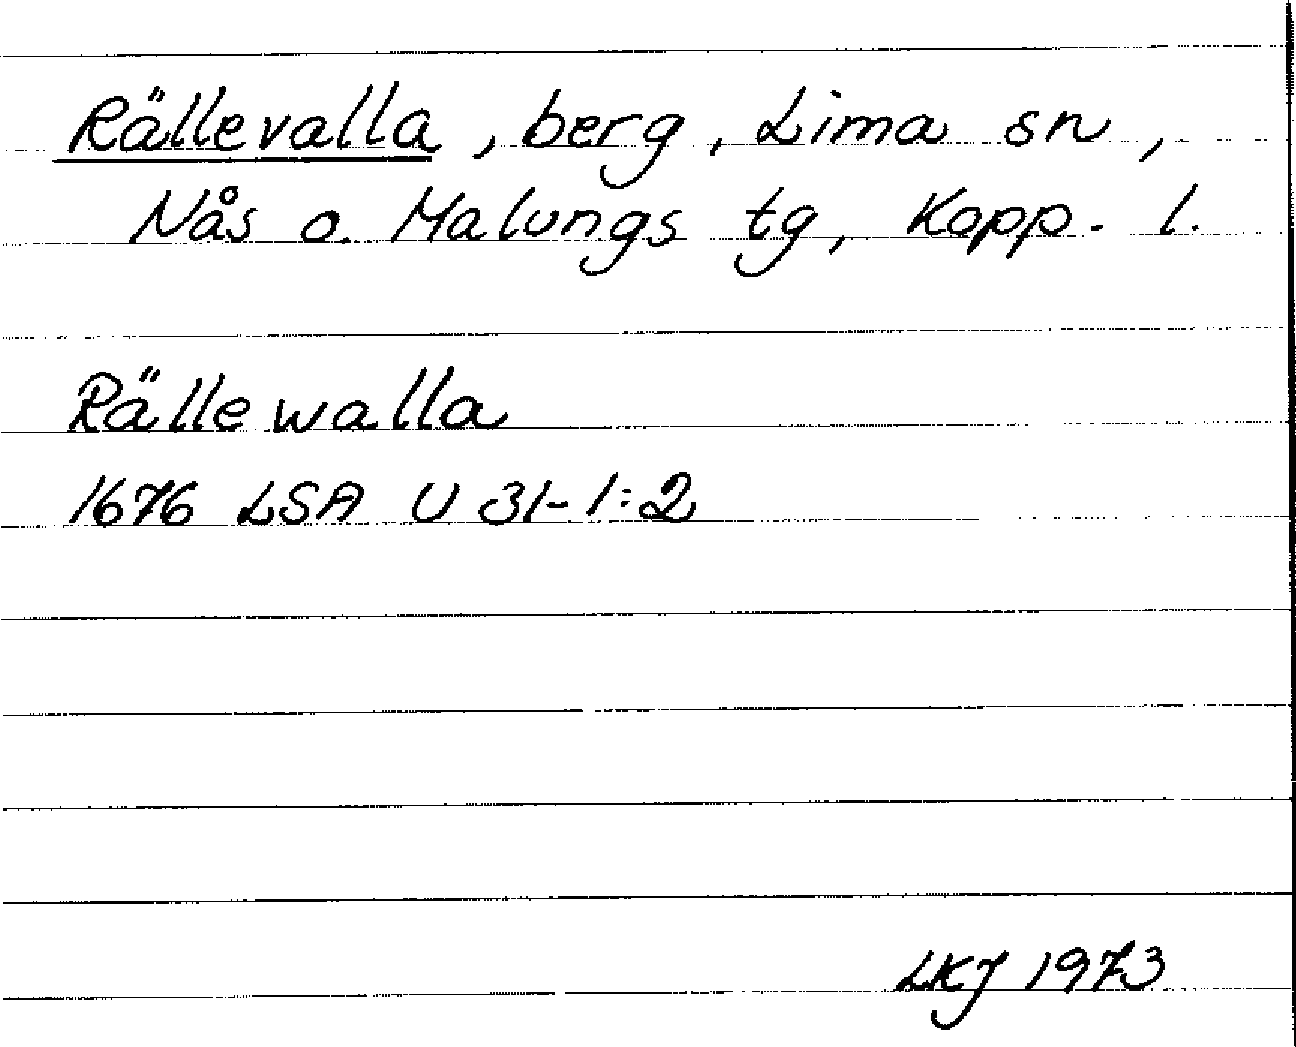 Rällevalla, berg, Lima sn,
Nås o. Malungs tg, Kopp. l.
Rällewalla
1676 LSA U 31-1:2
LKJ 1973